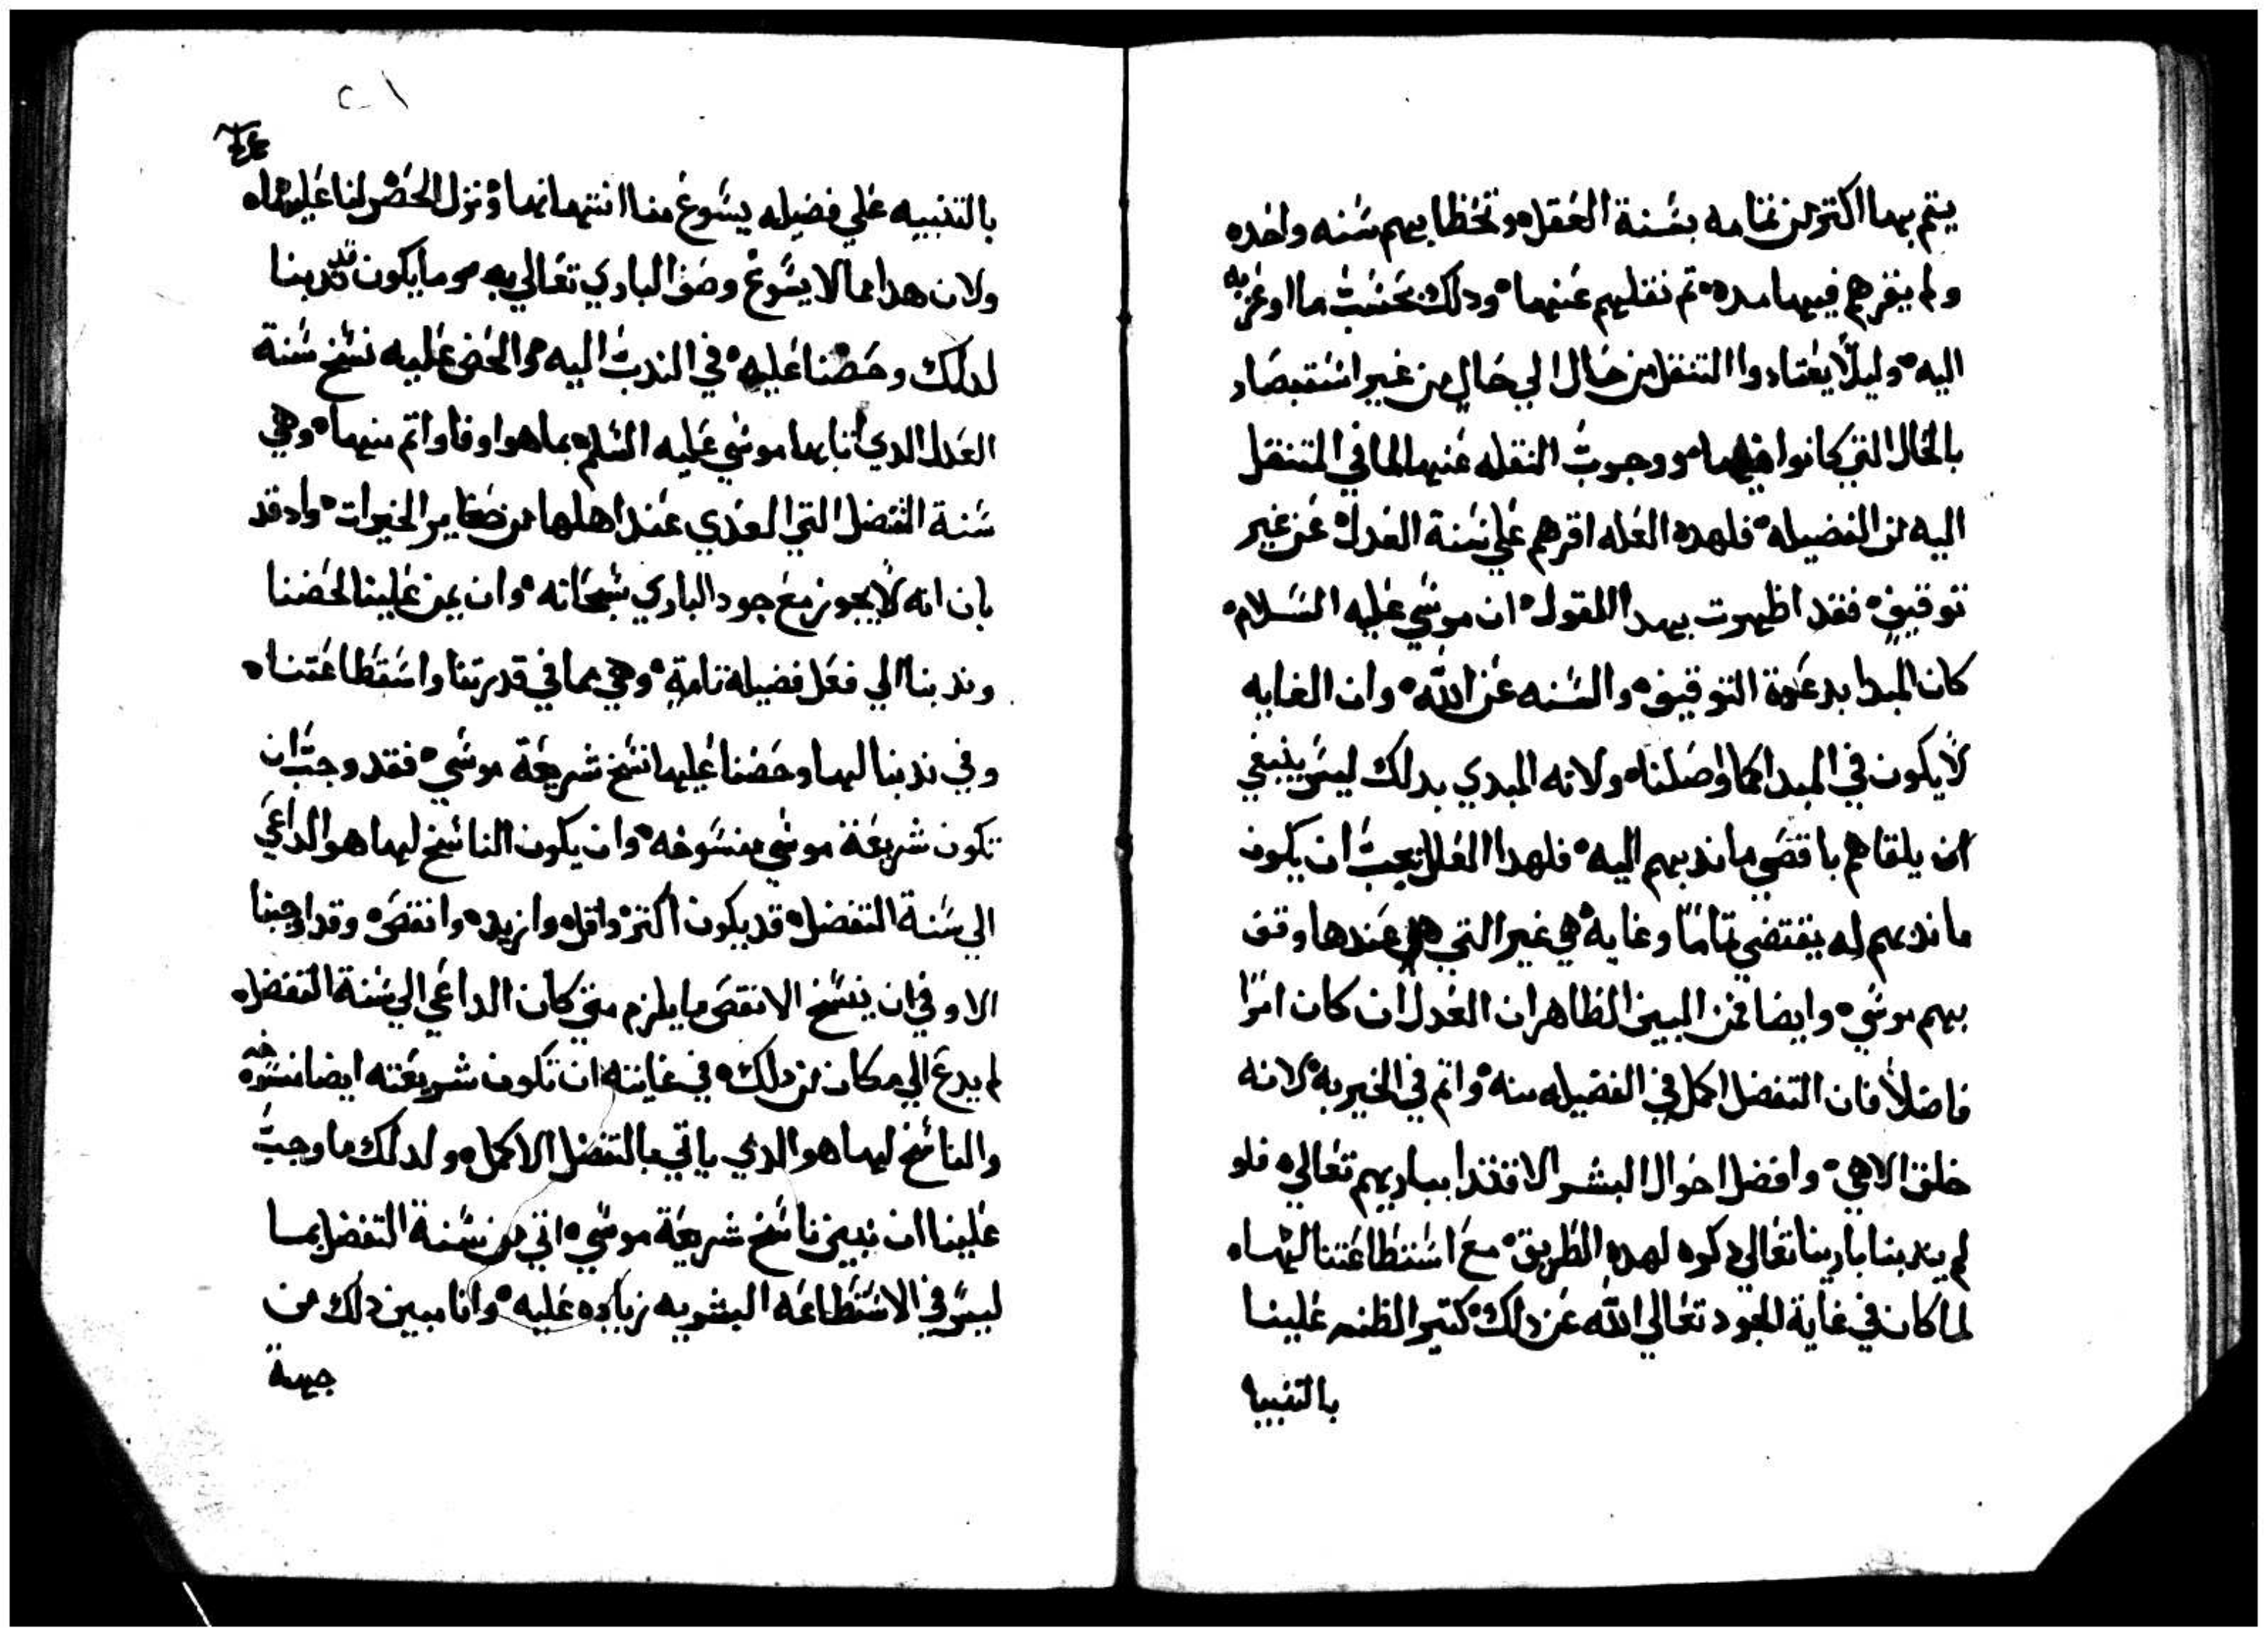 يتم بها اكتر من تمامه بسنة العقل وتخطا بهم سنه واحده
ولم يقرهم فيها مده تم نقلهم عنها ودلك بحسب ما اوعز به
اليه وليلا يعتادوا التنقل من حال الي حال من غير استقصاد
بالحال التي كانوا فيها ووجوب النقله عنها الما في المتنقل
اليه من الفضيله فلهده العله اقرهم علي سنة العدل عن غير
توقيف فقد اظهرت بهدا المقول ان موسي عليه السلام
كان المبدا بدعوة التوقيف والسنه عن الله وان الغايه
لا يكون في المبدا كما واصلنا ولانه المبدي بدلك ليس ينبغي
ان يلقاهم باقصي ما ندبهم اليه فلهدا العلل يجب ان يكون
ما ندبهم له يقتضي تماما وغاية هي غير التي هي عندها وقف
بهم موسي وايضا فمن المبين الظاهر ان العدل ان كان امرا
فاضلا فان التفضل اكمل في الفضيله منه واتم في الخيريه لانه
خلق الاهي وافضل احوال البشر الاقتدا بباريهم تعالي فلو
لم يندبنا بارينا تعالي دكره لهده الطريق مع استطاعتنا لها
لما كان في غاية الجود تعالي الله عن دلك كتير الظنه علينا
بالتنبيه
بالتنبيه علي فضيله يسوغ منا انتهانها ونزل الحض لنا عليها
ولان هدا مما لا يسوغ وصف الباري تعالي به وما يكون ندبنا
لدلك وحضنا عليه في الندب اليه والحض عليه نسخ سنة
العدل الدي اتا بها موسي عليه السلم بما هو اوفا واتم منها وهي
سنة التفضل التي العدي عند اهلها من صغاير الخيرات واد قد
بان انه لا يجوز مع جود الباري سبحانه وان يمن علينا لحضنا
وندبنا الي فعل فضيله تامة وهي مما في قدرتنا واستطاعتنا
وفي ندبنا اليها وحضنا عليها نسخ شريعة موسي فقد وجب ان
تكون شريعة موسي منسوخه وان يكون الناسخ لها هو الداعي
الي سنة التفضل قد يكون اكتر واقل وازيد وانقص وقد اوجبنا
الاوفي ان ينسخ الانقص ما يلزم متي كان الداعي الي سنة التفضل
لم يدع الي مكان من دلك في غايته ان تكون شريعته ايضا منسوخه
والناسخ لها هو الدي ياتي بالتفضل الاكمل ولدلك ما وجب
علينا ان نبين ناسخ شريعة موسي اتي من سنة التفضل بما
ليس في الاستطاعه البشريه زياده عليه وانا مبين دلك من
جهة